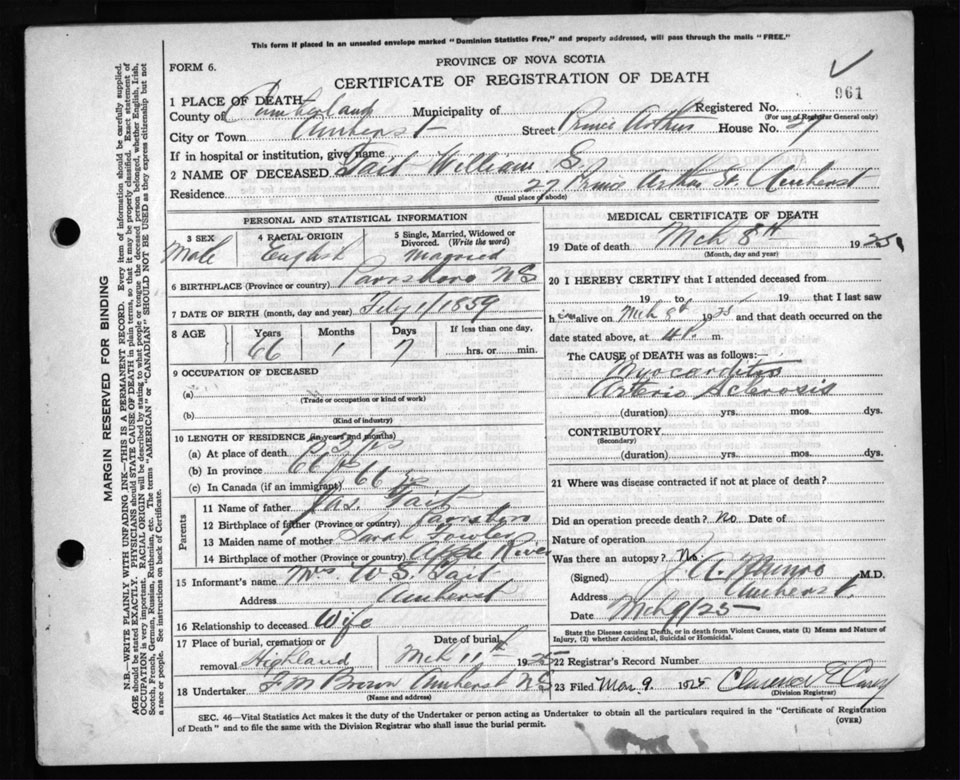 This form if placed in an unsealed envelope marked "Dominion Statistics Free," and properly addressed, will pass through the mails "FREE."
FORM 6.
PROVINCE OF NOVA SCOTIA
CERTIFICATE OF REGISTRATION OF DEATH
961
1 PLACE OF DEATH
County of Cumberland Municipality of Registered No.
(For use of Registrar General only)
City or Town Amherst Street Prince Arthur House No. 27
If in hospital or institution, give name
2 NAME OF DECEASED Tait William S.
Residence 27 Prince Arthur St. Amherst
(Usual place of abode)
PERSONAL AND STATISTICAL INFORMATION
3 SEX 4 RACIAL ORIGIN 5 Single, Married, Widowed or Divorced. (Write the word)
Male English Married
6 BIRTHPLACE (Province or country) Parrsboro NS
7 DATE OF BIRTH (month, day and year) Feby 1/1859
8 AGE Years Months Days If less than one day.
66 1 7 hrs. or min.
9 OCCUPATION OF DECEASED
(a)
(Trade or occupation or kind of work)
(b)
(Kind of industry)
10 LENGTH OF RESIDENCE (in years and months)
(a) At place of death yrs
(b) In province 66 yrs
(c) In Canada (if an immigrant) 66 yrs
Parents
11 Name of father Jas. Tait
12 Birthplace of father (Province or country) Parrsboro
13 Maiden name of mother Sarah Fowler
14 Birthplace of mother (Province or country) Apple River
15 Informant's name Mrs W S. Tait
Address Amherst
16 Relationship to deceased Wife
17 Place of burial, cremation or removal Highland Date of burial Mch 11th 1925
18 Undertaker F M Brown Amherst NS
(Name and address)
MEDICAL CERTIFICATE OF DEATH
19 Date of death Mch 8th 1925
(Month, day and year)
20 I HEREBY CERTIFY that I attended deceased from
19 to 19 that I last saw
him alive on Mch 8th 1925 and that death occurred on
date stated above, at 4 P. m.
The CAUSE of DEATH was as follows:—
Myocarditis
Arterio Sclerosis
(duration) yrs. mos. dys.
CONTRIBUTORY
(Secondary)
(duration) yrs. mos. dys.
21 Where was disease contracted if not at place of death?
Did an operation precede death? No Date of
Nature of operation
Was there an autopsy? No.
(Signed) J. A. Munro M.D.
Address Amherst.
Date Mch 9/25
State the Disease causing Death, or in death from Violent Causes, state (1) Means and Nature of
Injury, (2) whether Accidental, Suicidal or Homicidal.
22 Registrar's Record Number
23 Filed Mar. 9 1925 Clarence E Casey
(Division Registrar)
SEC. 46—Vital Statistics Act makes it the duty of the Undertaker or person acting as Undertaker to obtain all the particulars required in the "Certificate of Registration
of Death" and to file the same with the Division Registrar who shall issue the burial permit.
(OVER)
MARGIN RESERVED FOR BINDING
N.B.—WRITE PLAINLY WITH UNFADING INK—THIS IS A PERMANENT RECORD. Every item of information should be carefully supplied.
AGE should be stated EXACTLY. PHYSICIANS should STATE CAUSE OF DEATH in plain terms, so that it may be properly classified. Exact statement of
OCCUPATION is very important. RACIAL ORIGIN will be described by stating to what people or tongue the deceased person belonged, whether English, Irish,
Scotch, French, German, Russian, Ruthenian, etc. The terms "AMERICAN" or "CANADIAN" SHOULD NOT BE USED as they express citizenship but not
a race or people. See instructions on back of Certificate.